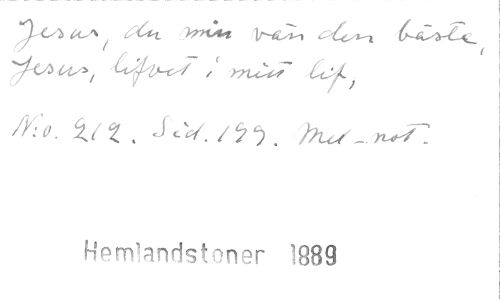 Jesus, du min vän den bäste,
Jesus, lifvet i mitt lif,
N:o. 212. Sid. 199. Med not.
Hemlandstoner 1889